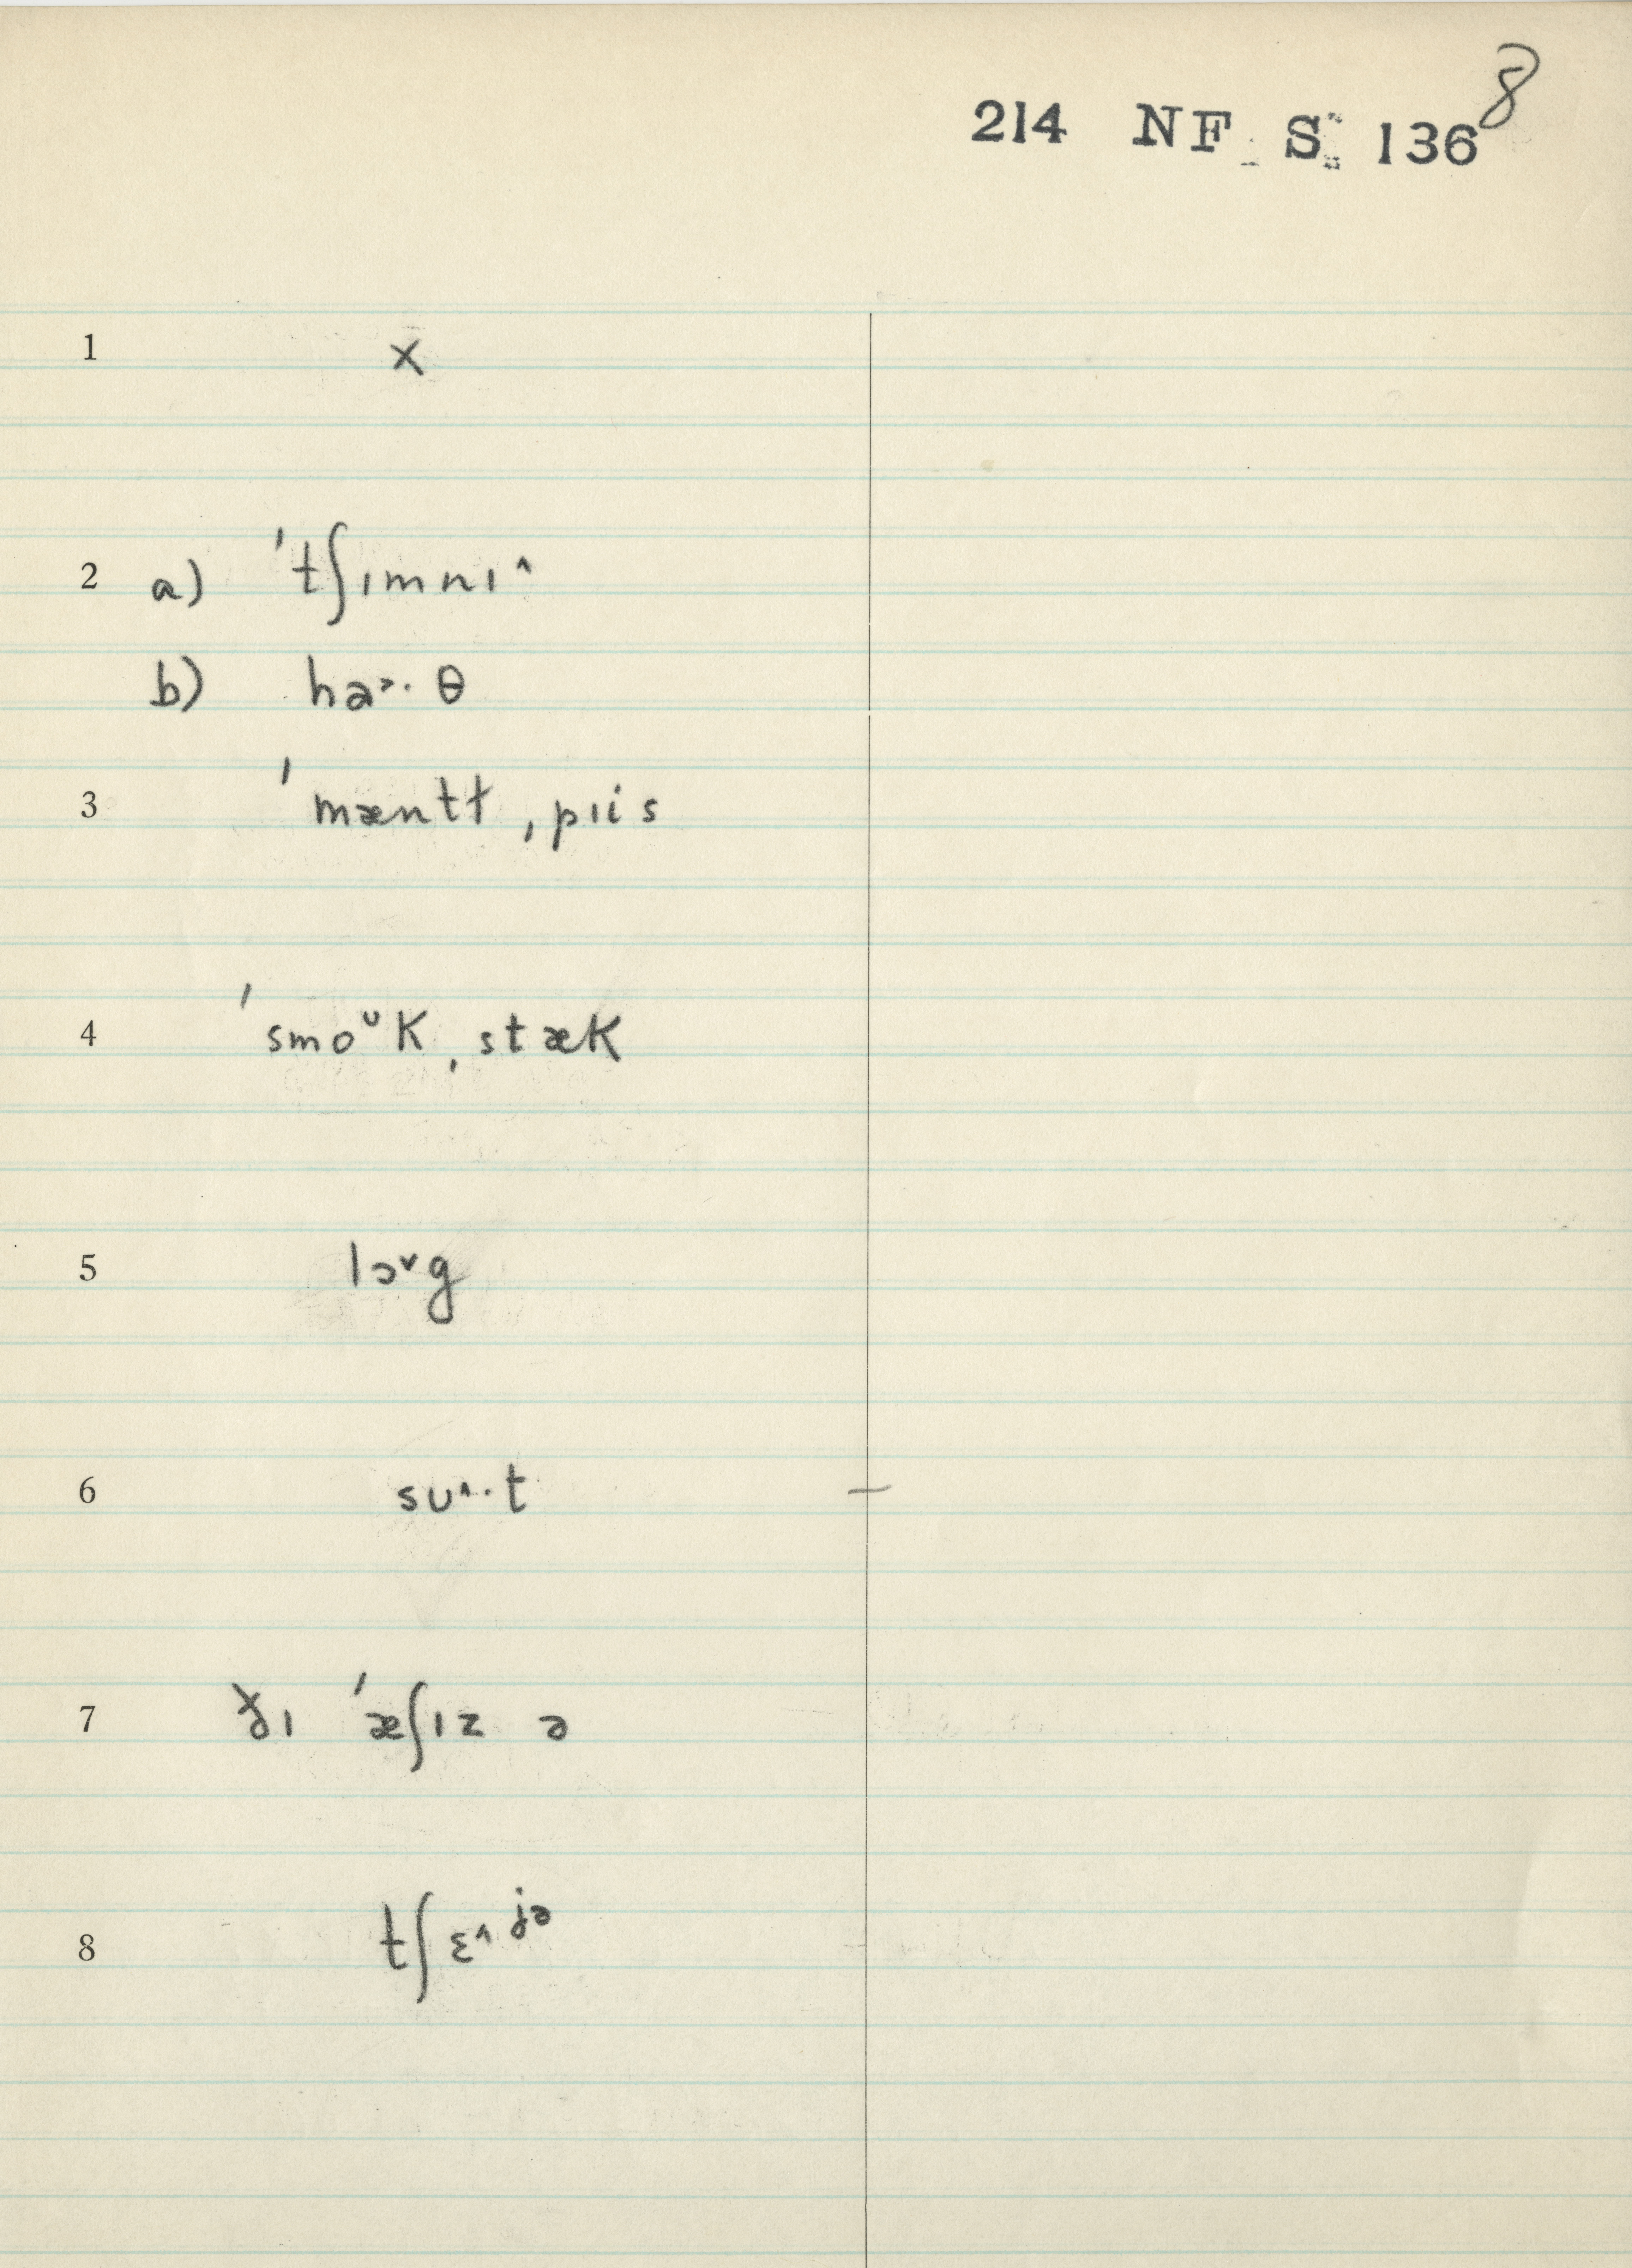 8
214 NF S: 136
1 x
2 a) ˈtʃɪmnɪ^
b) ha˃· θ
3 ˈmæntt ˌpɪis
4 ˈsmoᶷk ˌstæk
5 lɔ˅g
6 sᴜ^·t
7 ðɪ ˈæʃɪz ə
8 tʃɛ^ʲᵊ